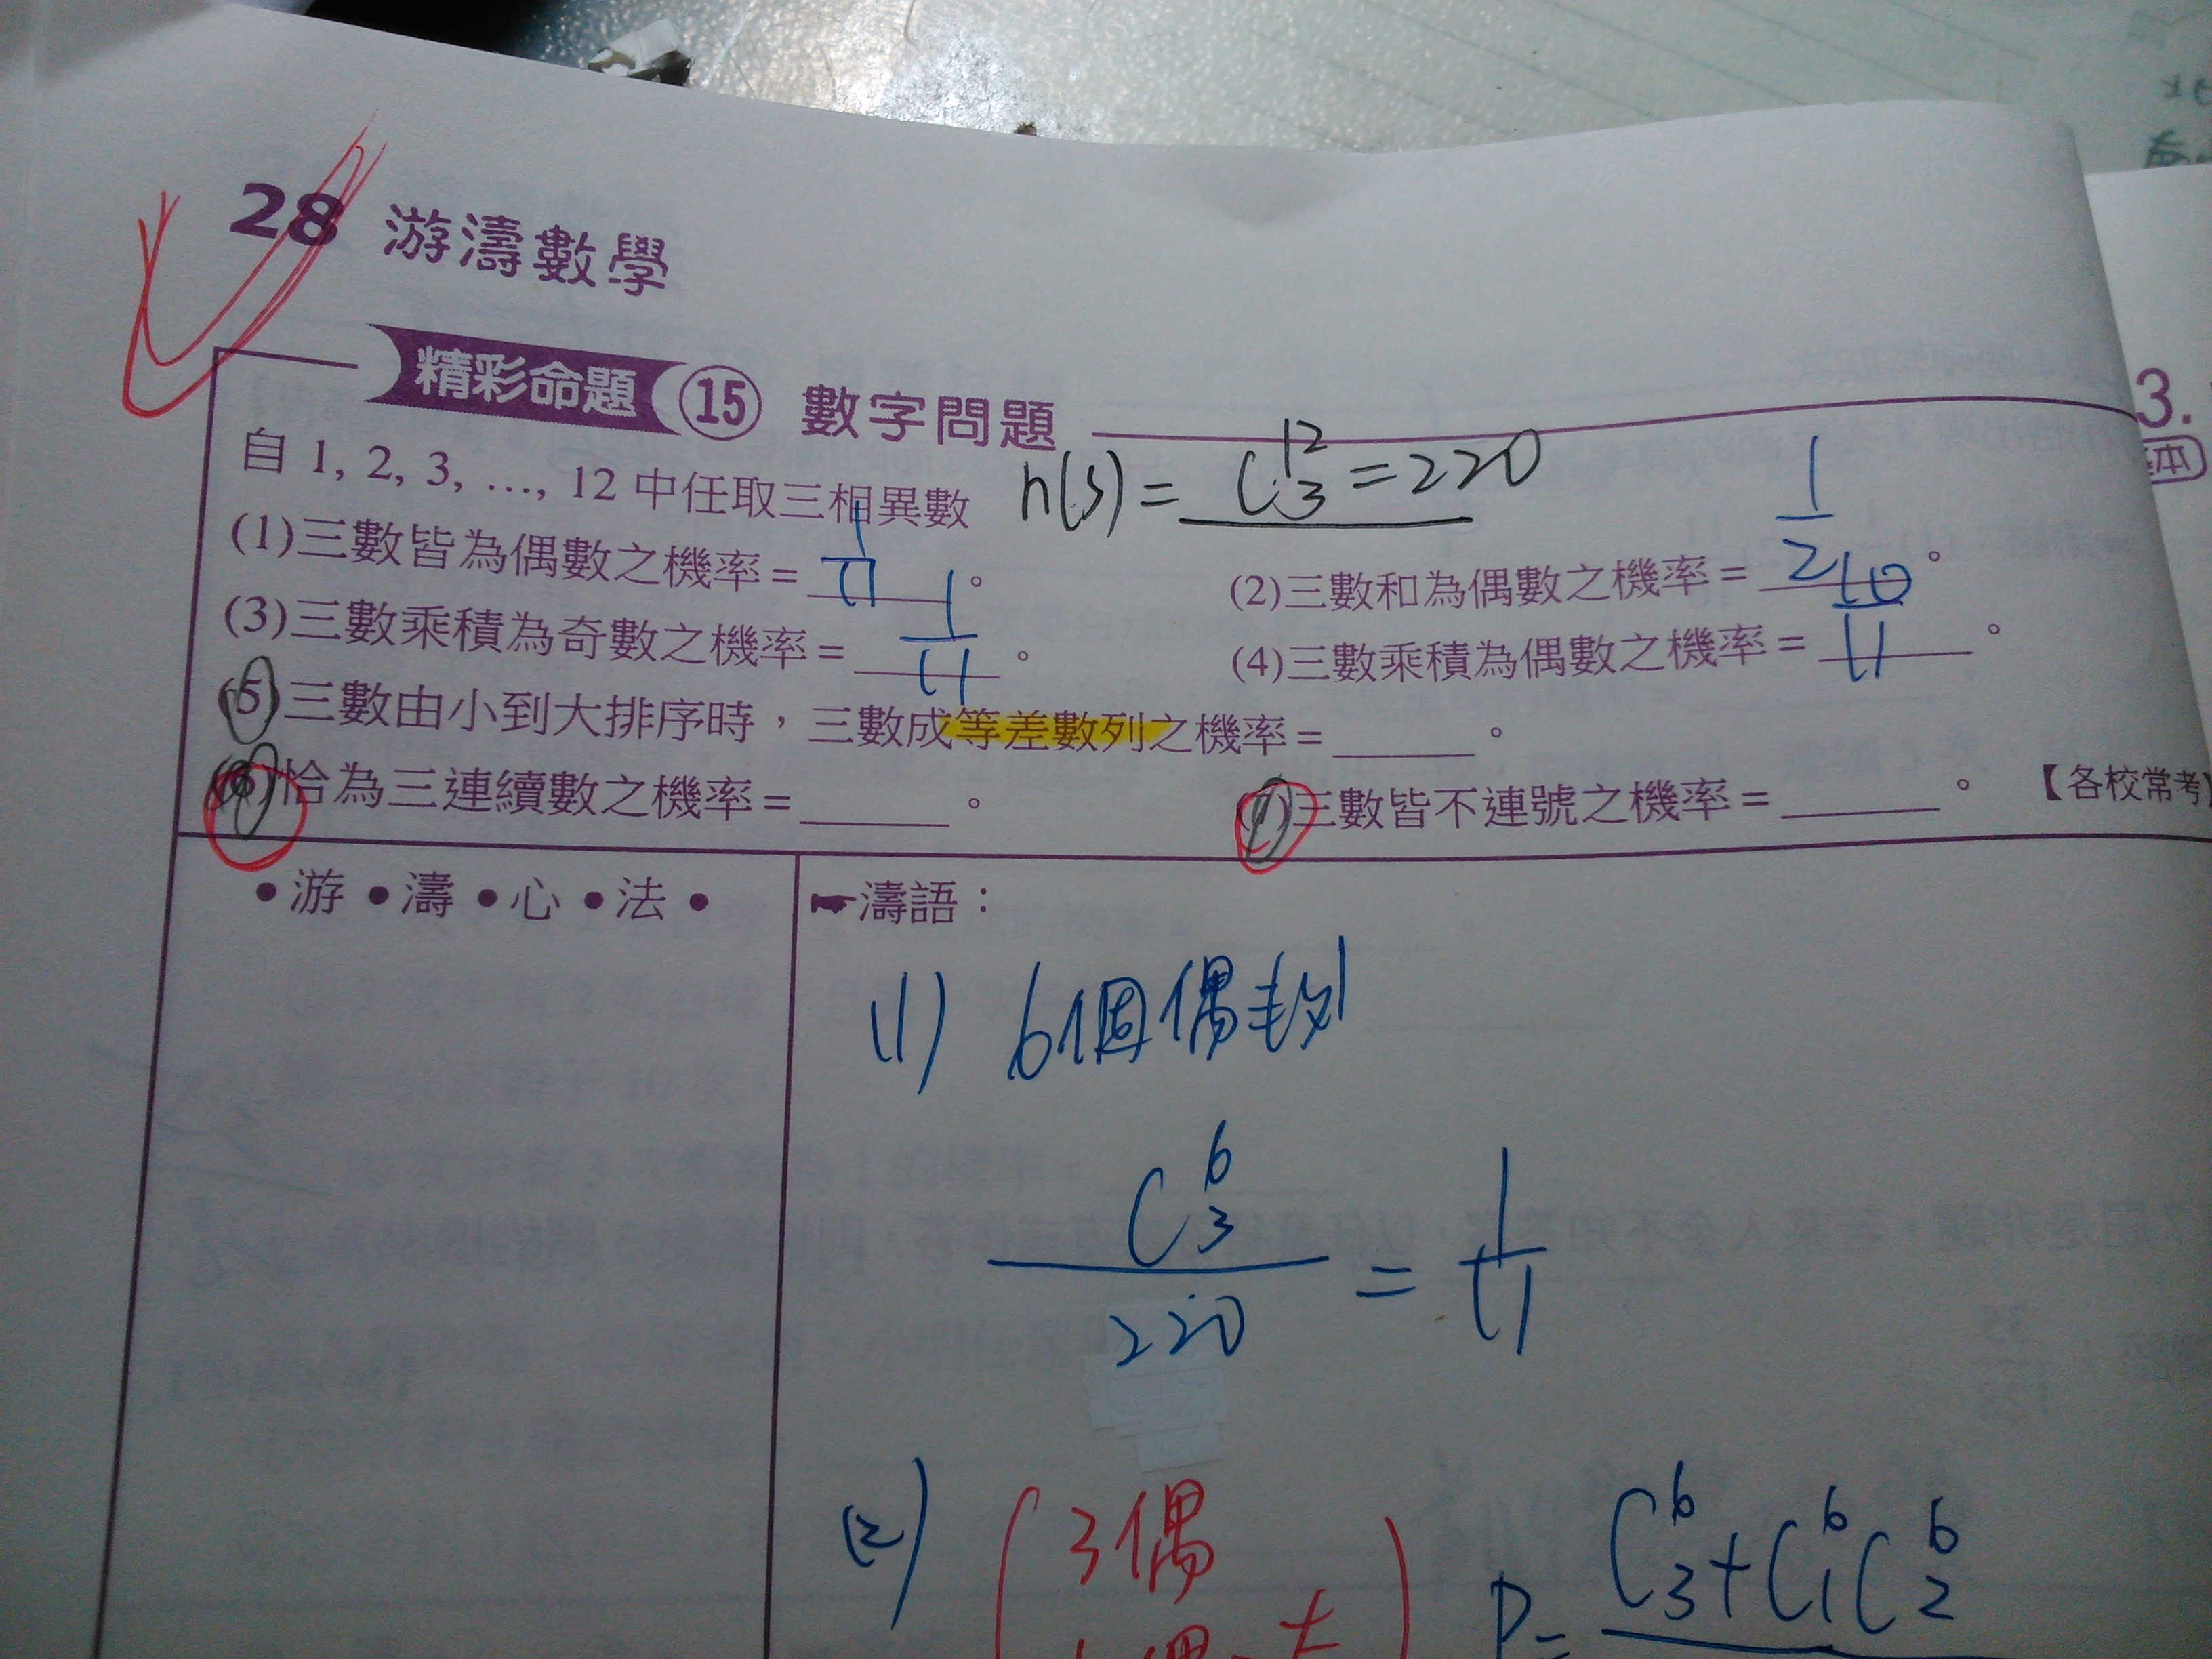 28 游濤數學
精彩命題 15 數字問題
自 1, 2, 3, …, 12 中任取三相異數 n(S) = C 12 3 = 220
(1)三數皆為偶數之機率 = 1/11 。
(2)三數和為偶數之機率 = 1/2 。
(3)三數乘積為奇數之機率 = 1/11 。
(4)三數乘積為偶數之機率 = 10/11 。
(5)三數由小到大排序時,三數成等差數列之機率 = ______ 。
(6)恰為三連續數之機率 = ______ 。
(7)三數皆不連號之機率 = ______ 。 【各校常考
3.
本
•游•濤•心•法•
☛濤語:
(1) 6個偶數
C 6 3 / 220 = 1/11
(2) 3偶
P = C 6 3 + C 6 1 C 6 2